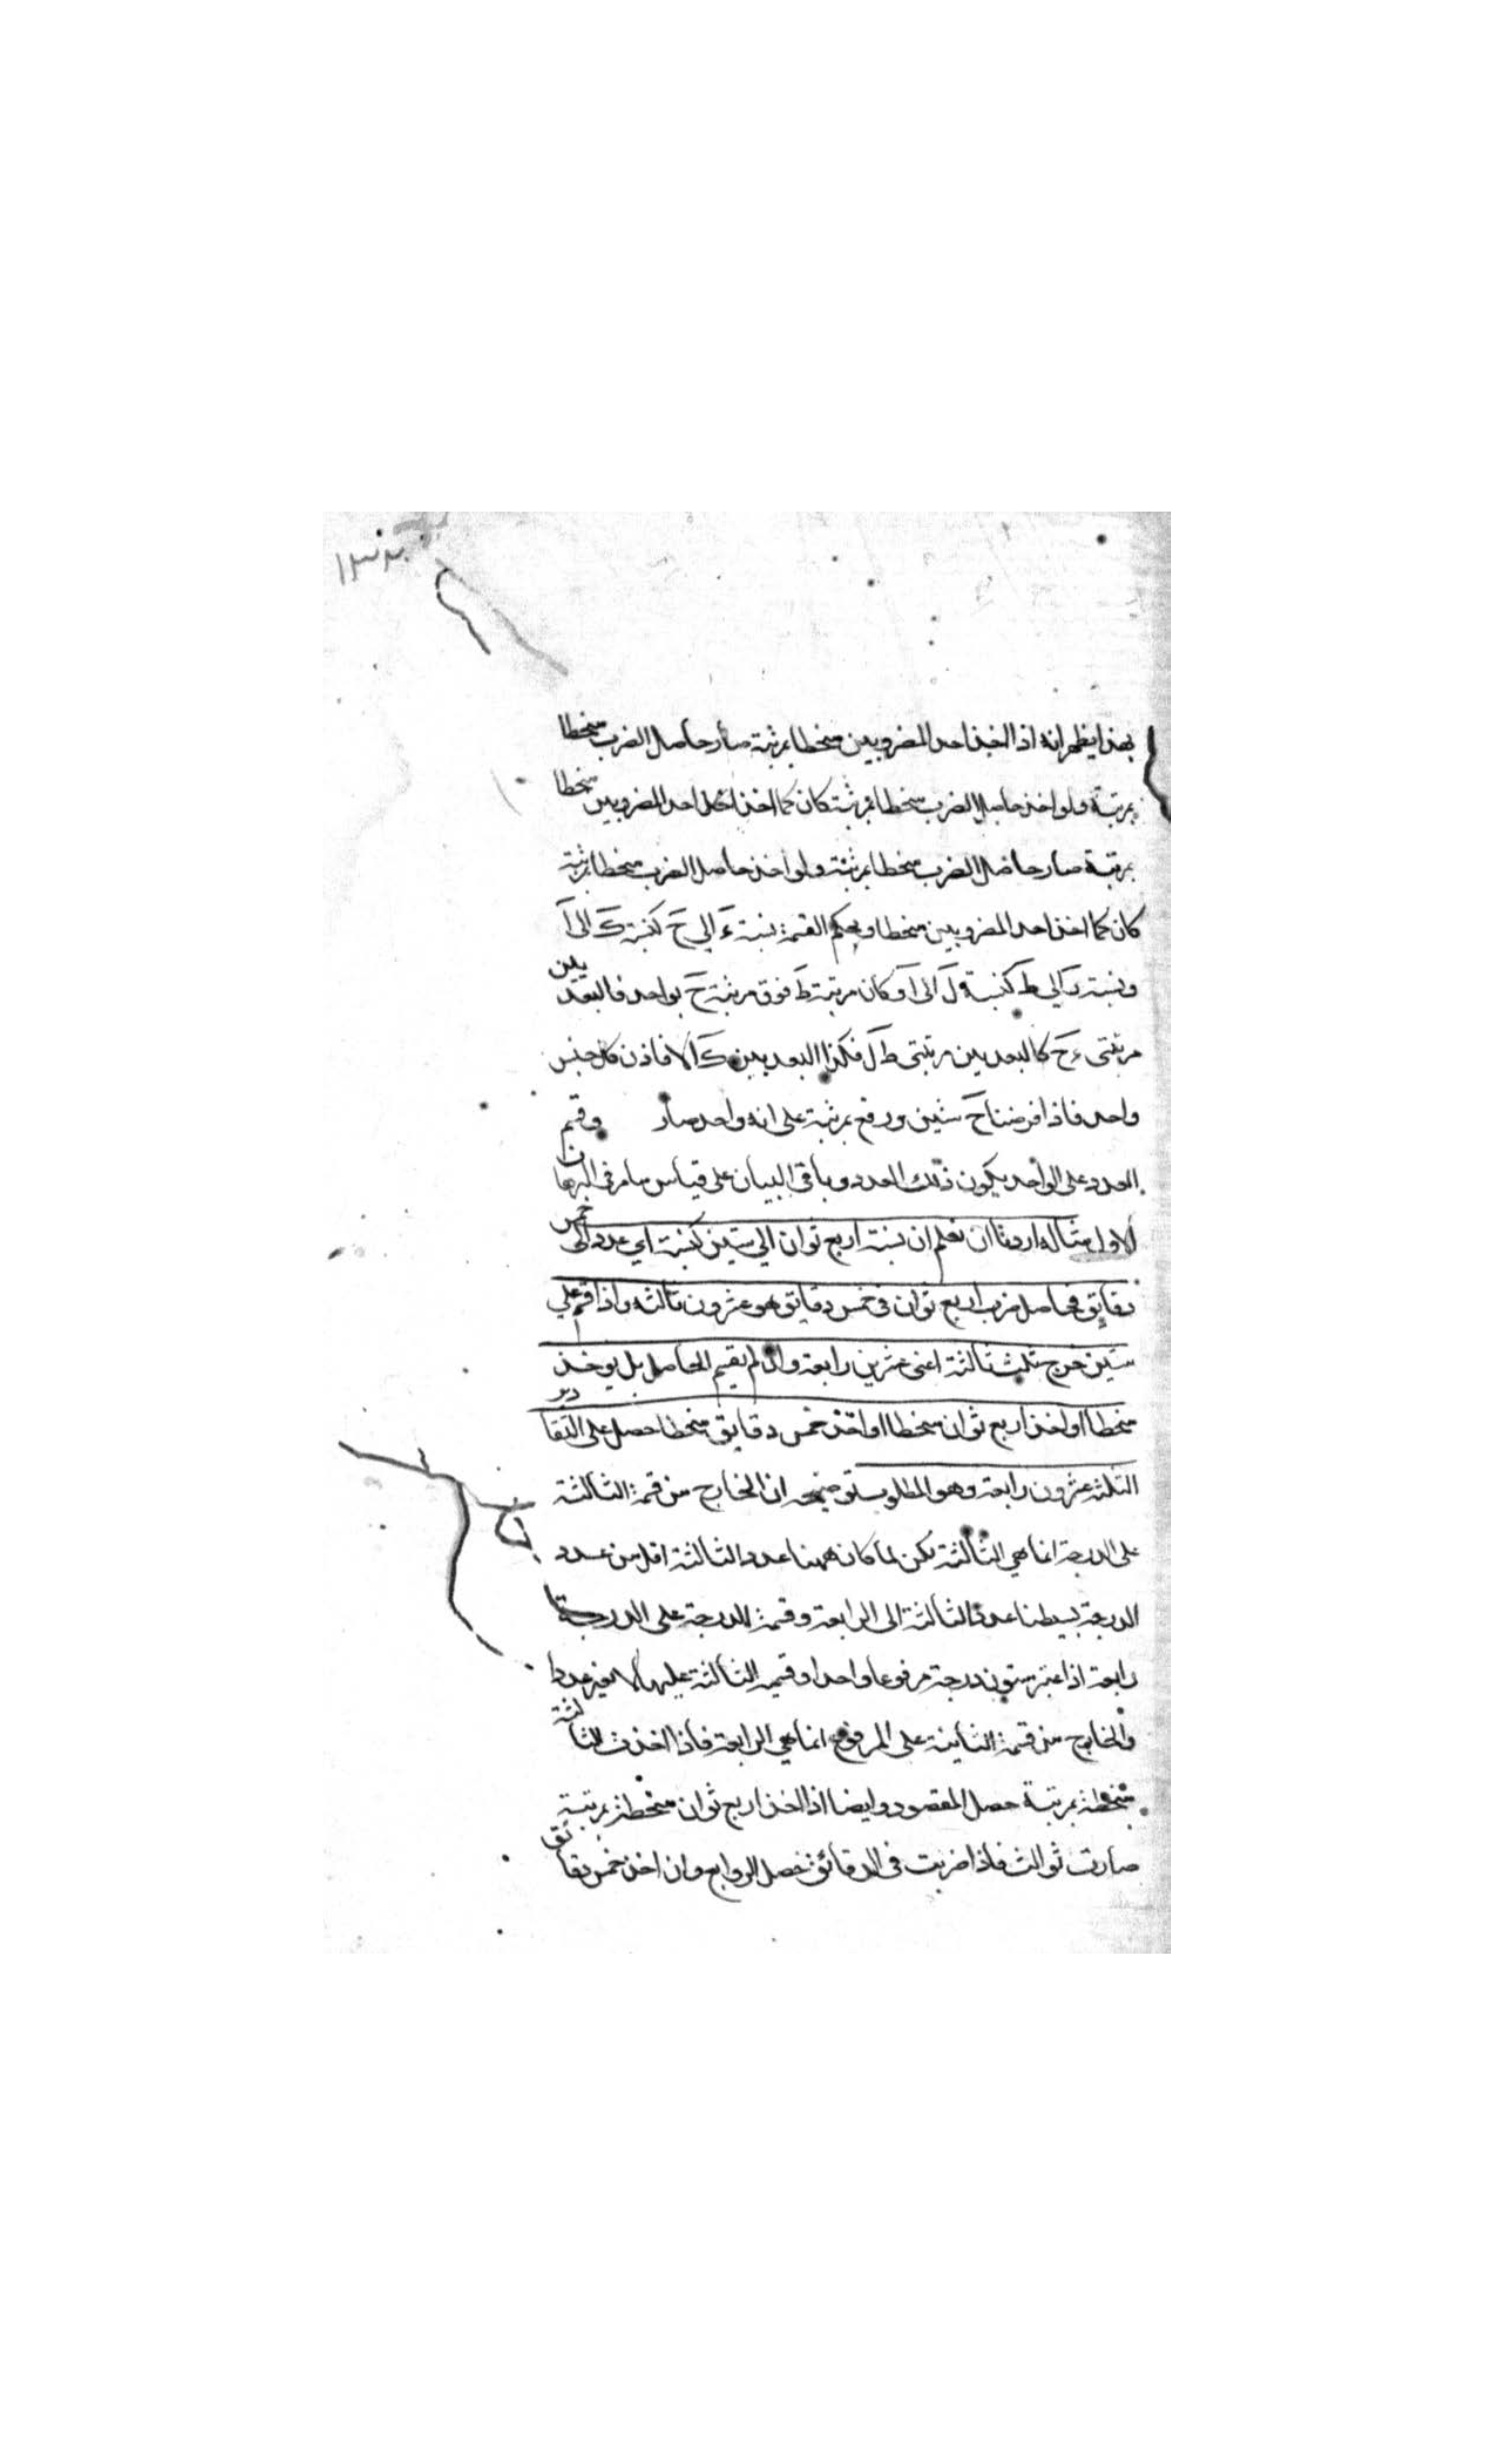 بهذا يظهر انه اذا اخذ احد المضروبين منحطا بمرتبة صار حاصل الضرب منحطا
بمرتبة ولو اخذ حاصل الضرب منحطا بمرتبة كان كما اخذ احد المضروبين منحطا
بمرتبة صار حاصل الضرب منحطا بمرتبة ولو اخذ حاصل الضرب منحطا بمرتبة
كان كما اخذ احد المضروبين منحطا وبحكم القسمة نسبة ءَ الى حَ كنسبة كَ الى اَ
ونسبة الى ط كنسبة ل الى ا وكان مرتبة ط فوق مرتبة ح بواحد فالبعد بين
مرتبتى ء ح كالبعد بين مرتبتى ط ل فكذا البعد بين ك فاذن كل جنس
واحد فاذا فرضنا ح ستين ورفع بمرتبة على انه واحد صار وقسم
العدد على الواحد يكون ذلك العدد وباقى البيان على قياس ما مر فى البرهان
الاول مثاله اردنا ان نعلم ان نسبة اربع ثوان الي ستين كنسبة اي عدد الى خمس
دقايق فحاصل ضرب اربع ثوان فى خمس دقايق هو عشرون ثالثه واذا قسم علي
ستين خرج ثلث ثالثة اعنى عشرين رابعة وان لم يقسم الحاصل بل يوخذ
منحطا او اخذ اربع ثوان منحطا او اخذ خمس دقايق منحطا حصل على التقادير
الثلثه عشرون رابعة وهو المطلوب توضيحه ان الخارج من قسمة الثالثة
على الدرجة انما هي الثالثة لكن لما كان ههنا عدد الثالثة اقل من عدد
الدرجة بسطنا عدد الثالثة الى الرابعة وقسمة الدرجة على الدرجة
رابعة اذا اعتبر ستون درجة مرفوعا واحدا وقسم الثالثة عليها لا يغير عددا
والخارج من قسمة الثانية على المرفوع انما هي الرابعة فاذا اخذت الثالثة
منحطة بمرتبة حصل المقصود وايضا اذا اخذ اربع ثوان منحطة بمرتبة
صارت ثوالث فاذا ضربت فى الدقائق حصل الروابع وان اخذ خمس دقائق